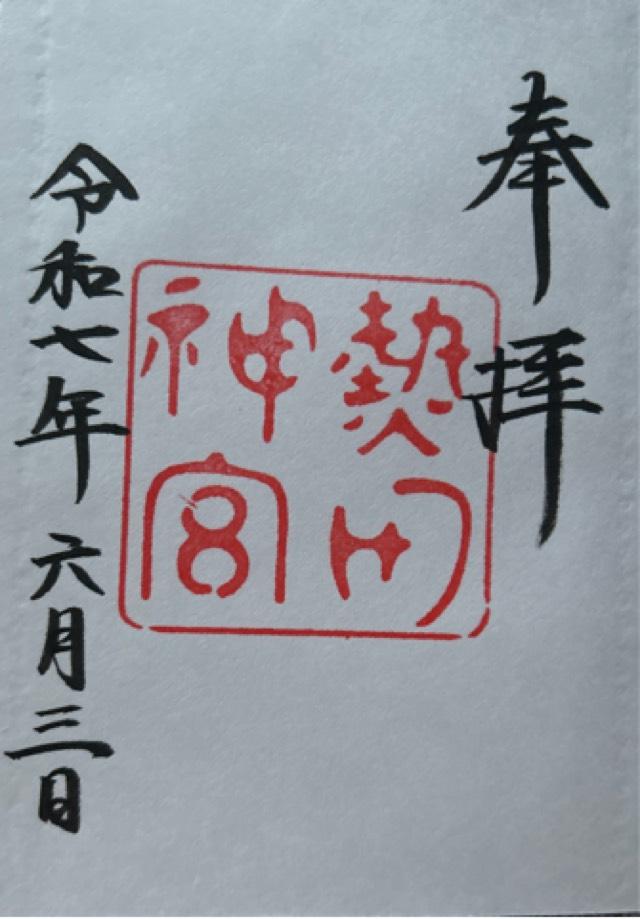 奉拝
熱田
神宮
令和七年六月三日